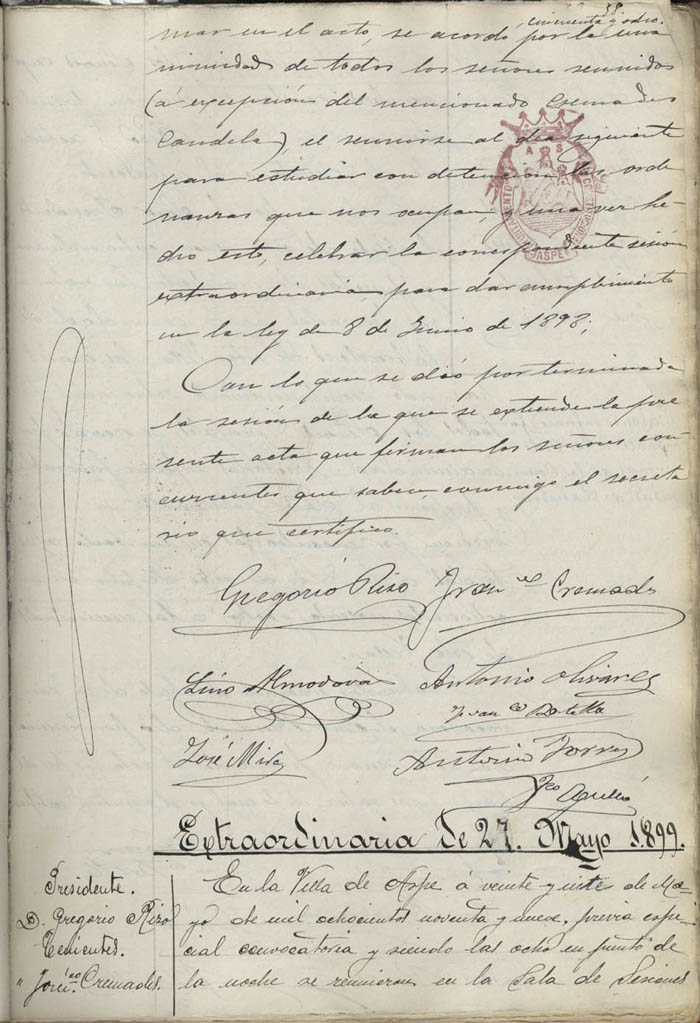 58
cincuenta y ocho.
mar en el acto, se acordó por la una
nimidad de todos los señores reunidos
(á excepción del mencionado Cremades
Candela), el reunirse al dia siguiente
para estudiar con detencion las orde
nanzas que nos ocupan, y una vez he-
cho esto, celebrar la correspondiente sesión
extraordinaria, para dar cumplimiento
en la ley de 8 de Junio de 1898;
Con lo que se dió por terminada
la sesión de la que se extiende la pre
sente acta que firman los señores con
currentes que saben, conmigo el secreta
rio que certifico.
Gregorio Rizo Fran.co Cremades
Lino Almodovar Antonio Olivares
Fran.co Botella
José Mira Antonio Torres
Fco Agulló
Extraordinaria de 27. Mayo 1.899.
Presidente.
D. Gregorio Rizo
Tenientes.
" Cremades.
En la Villa de Aspe á veinte y siete de Ma-
yo de mil ochocientos noventa y nueve, previa espe-
cial convocatoria y siendo las ocho en punto de
la noche se reunieron en la Sala de Sesiones